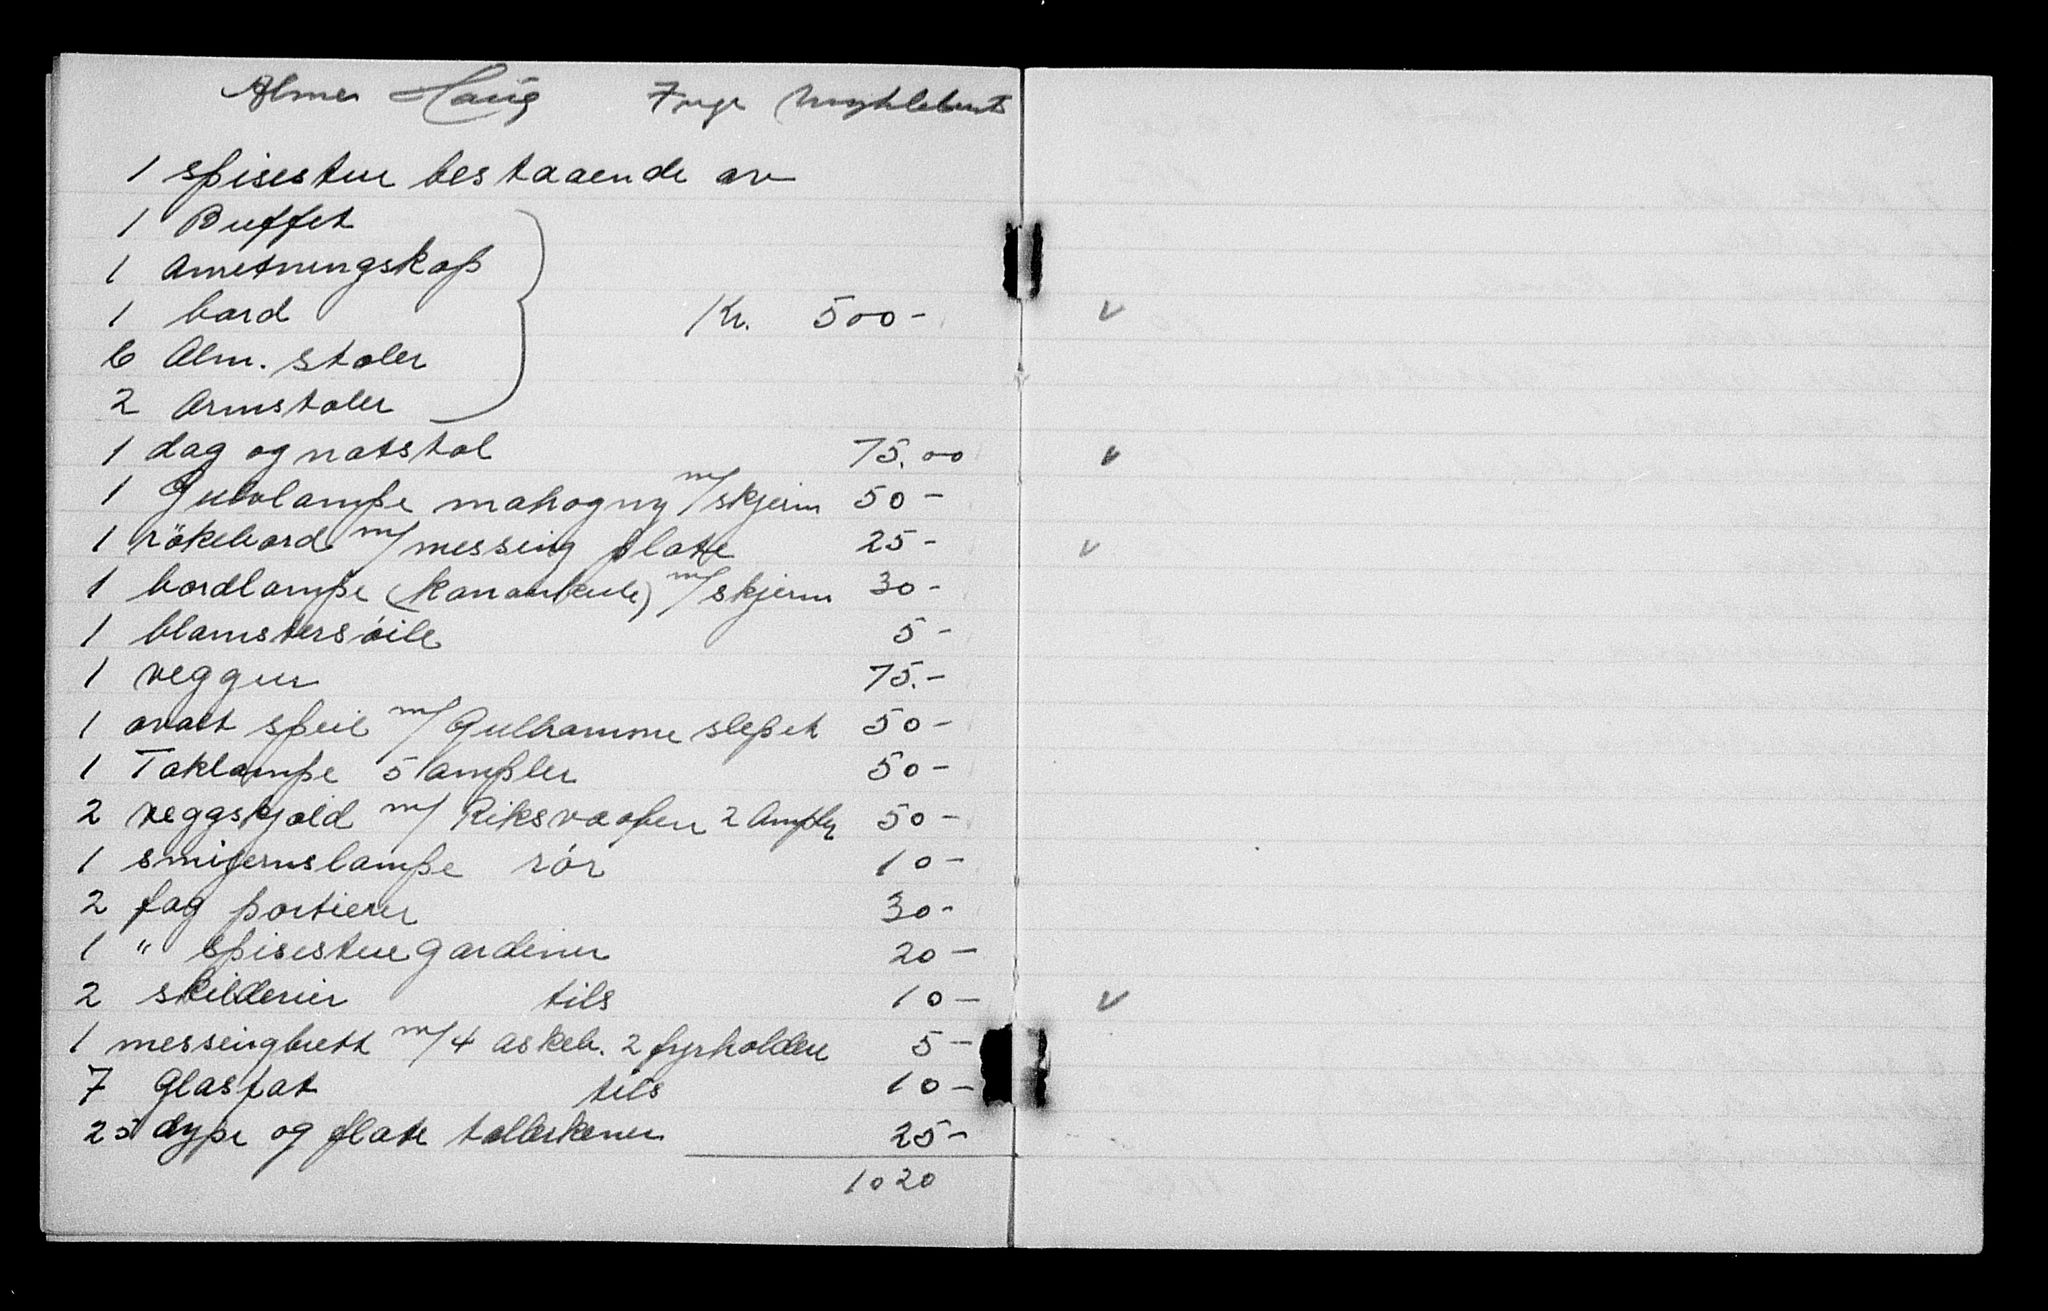 Almer Haug Inge Myklebust
1 spisestue bestaaende av
1 Buffet
1 Anretningskap
1 bord Kr. 500-
6 Alm. stoler
2 Armstoler
1 dag og natstol 75.00
1 Gulvlampe mahogny m/skjerm 50-
1 rökebord m/messing plate 25-
1 bordlampe (kanonkule) m/skjerm 30-
1 blomstersøile 5-
1 veggur 75.-
1 ovalt speil m/Gulramme slepet 50-
1 Taklampe 5 ampler 50-
2 veggskjold m/ Riksvaapen 2 Ampler 50-
1 smijernslampe rør 10-
2 fag portierer 30-
1 " spisestuegardiner 20-
2 skilderier tils 10-
1 messingbrett m/4 askeb. 2 fyrholdere 5-
7 Glasfat tils 10-
25 dype og flate tallerkener 25-
1020